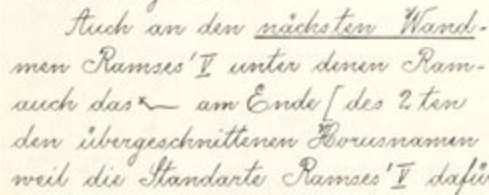 Auch an den nächsten Wand-
men Ramses' V unter denen Ram-
auch das am Ende [des 2ten
den übergeschnittenen Horusnamen
weil die Standarte Ramses' V dafü